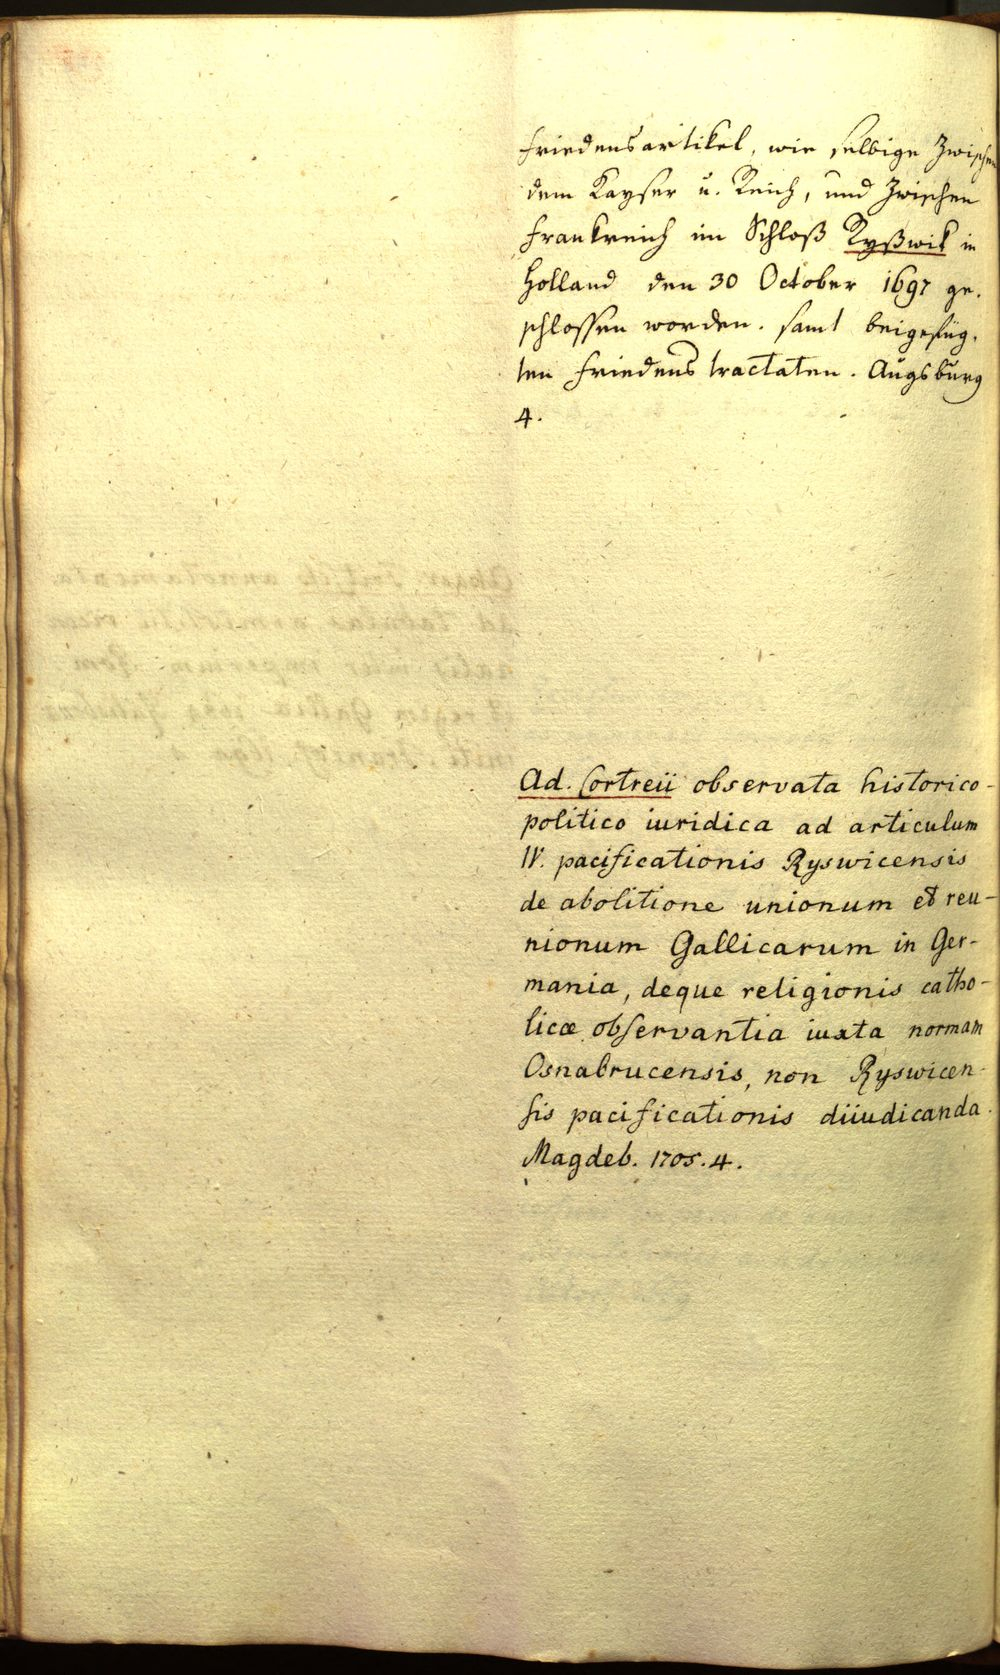 Friedensartikel, wie selbige zwischen
dem Kayser u. Reich, und zwischen
Frankreich im Schloß Ryßwik in
Holland den 30 October 1697 ge-
schlossen worden. samt beigefüg-
ten Friedens tractaten. Augsburg
4.
Ad. Cortreii observata historico-
politico iuridica ad articulum
IV. pacificationis Ryswicensis
de abolitione unionum et reu-
nionum Gallicarum in Ger-
mania, deque religionis catho-
licæ observantia iuxta normam
Osnabrucensis, non Ryswicen-
sis pacificationis diiudicanda.
Magdeb. 1705. 4.